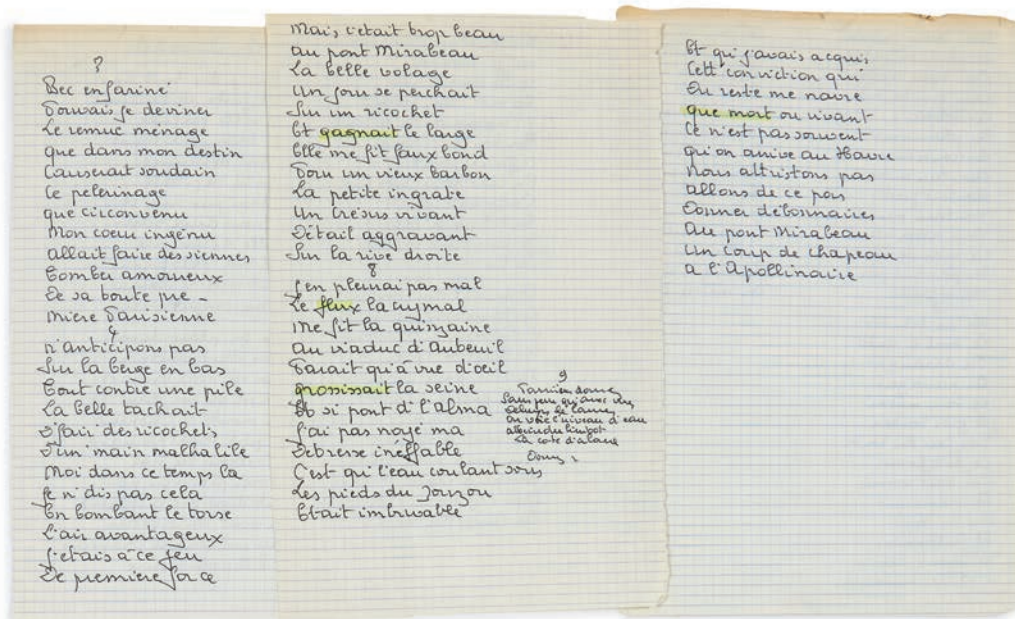 3
Bec enfariné
Pouvais-je deviner
Le remue ménage
que dans mon destin
Causerait soudain
Ce pelerinage
que circonvenu
Mon coeur ingénu
allait faire des siennes
Tomber amoureux
De sa toute pre-
miere Parisienne
4
n'anticipons pas
Sur la berge en bas
Tout contre une pile
La belle tachait
d'fair' des ricochets
D'un' main malhabile
Moi dans ce temps la
Je n'dis pas cela
En bombant le torse
L'air avantageux
J'etais à ce jeu
De premiere force
Mais c'etait trop beau
au pont Mirabeau
La belle volage
Un jour se perchait
Sur un ricochet
Et gagnait le large
Elle me fit faux bond
Pour un vieux barbon
La petite ingrate
Un Crésus vivant
Détail aggravant
Sur la rive droite
8
J'en pleurai pas mal
Le flux lacrymal
Me fit la quinzaine
Au viaduc d'Auteuil
Parait qu'à vue d'oeil
grossissait la seine
Et si pont d'l'Alma
J'ai pas noyé ma
Detresse inéffable
C'est qu'l'eau coulant sous
Les pieds du Zouzou
Etait imbuvable
9
d'eau
Et qu'j'avais acquis
Cett' conviction qui
Du reste me navre
que mort ou vivant
Ce n'est pas souvent
qu'on arrive au Havre
Nous attristons pas
allons de ce pas
Donner débonnaires
Au pont Mirabeau
Un coup de chapeau
a l'Apollinaire